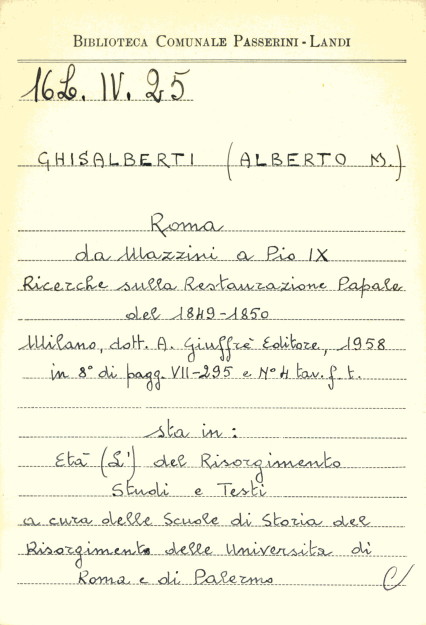 BIBLIOTECA COMUNALE PASSERINI-LANDI
16L. IV. 25
GHISALBERTI (ALBERTO M.)
Roma
da Mazzini a Pio IX
Ricerche sulla Restaurazione Papale
del 1849-1850
Milano, dott. A. Giuffrè Editore, 1958
in 8° di pagg. VII-295 e N° 4 tav. f. t.
sta in:
Età (L') del Risorgimento
Studi e Testi
a cura delle Scuole di Storia del
Risorgimento delle Università di
Roma e di Palermo